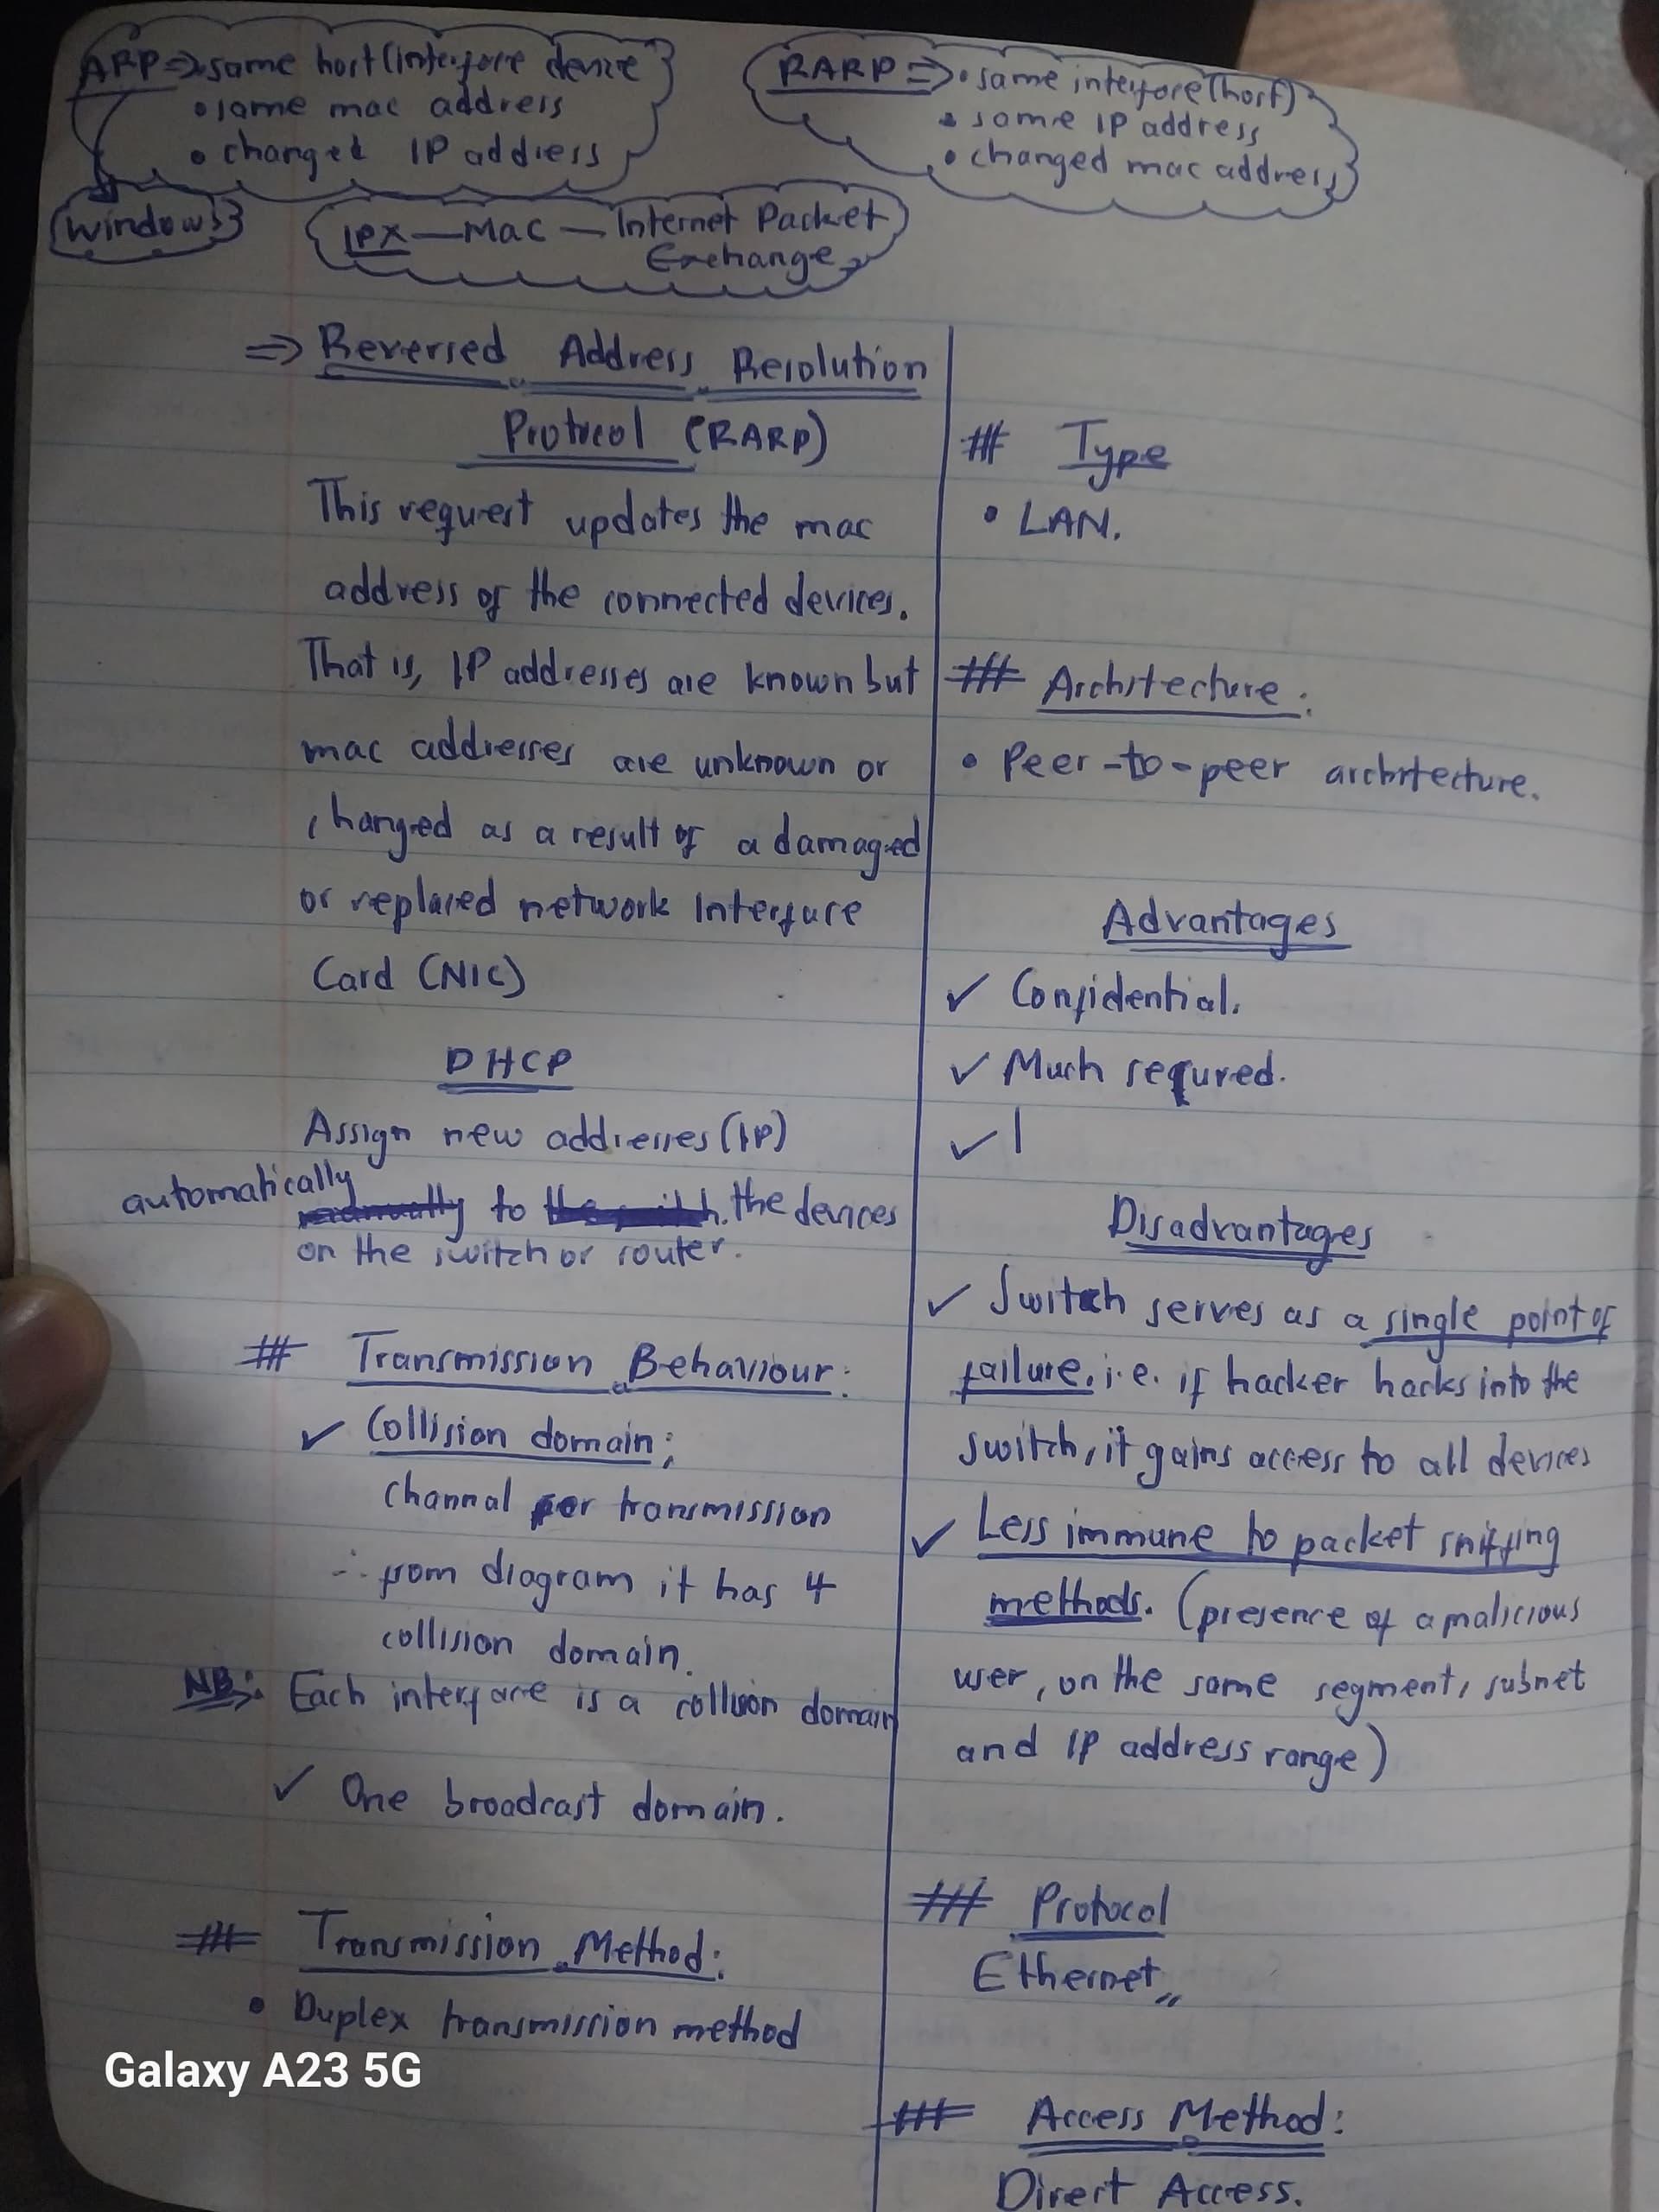 ARP => same host (interface device
• same mac address
• changed IP address
Windows
RARP => • same interface (host)
• same IP address
• changed mac address
IPX — Mac — Internet Packet
Exchange
=> Reversed Address Resolution
Protocol (RARP)
This request updates the mac
address of the connected devices.
That is, IP addresses are known but
mac addresses are unknown or
changed as a result of a damaged
or replaced network Interface
Card (NIC)
DHCP
Assign new addresses (IP)
automatically to the devices
on the switch or router.
# Transmission Behaviour:
✓ Collision domain;
Channal per transmission
∴ from diagram it has 4
collision domain.
NB: Each interface is a collision domain
✓ One broadcast domain.
# Transmission Method:
• Duplex transmission method
# Type
• LAN.
# Architecture:
• Peer-to-peer architecture.
Advantages
✓ Confidential.
✓ Much
✓ I
Disadvantages
✓ Switch serves as a single point of
failure. i.e. if hacker hacks into the
switch, it gains access to all devices
✓ Less immune to packet sniffing
methods. (presence of a malicious
user, on the same segment, subnet
and IP address range)
# Protocol
Ethernet,,
# Access Method:
Direct Access.
Galaxy A23 5G